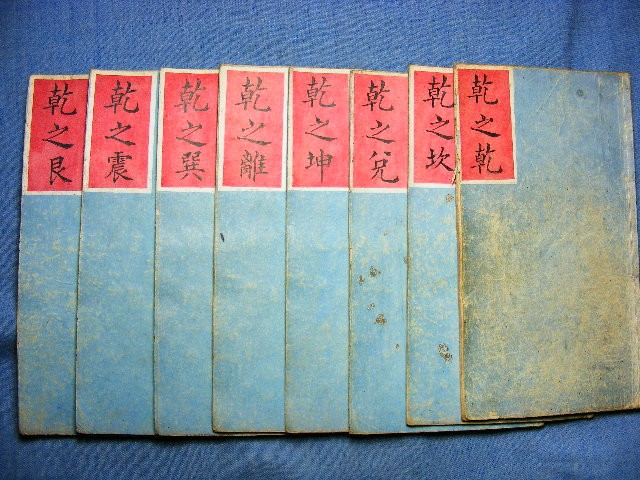 乾之乾
乾之坎
乾之兌
乾之坤
乾之離
乾之巽
乾之震
乾之艮